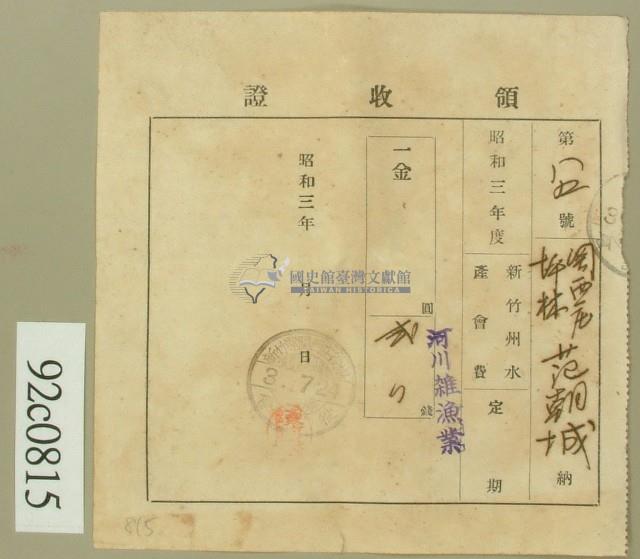 領收證
第 號
關西庄
坪林 范朝城 納
昭和三年度 新竹州水產會費 定期
河川雜漁業
一金 圓 錢
昭和三年 月 日
3.7.2
國史館臺灣文獻館
TAIWAN HISTORICA
92c0815
815